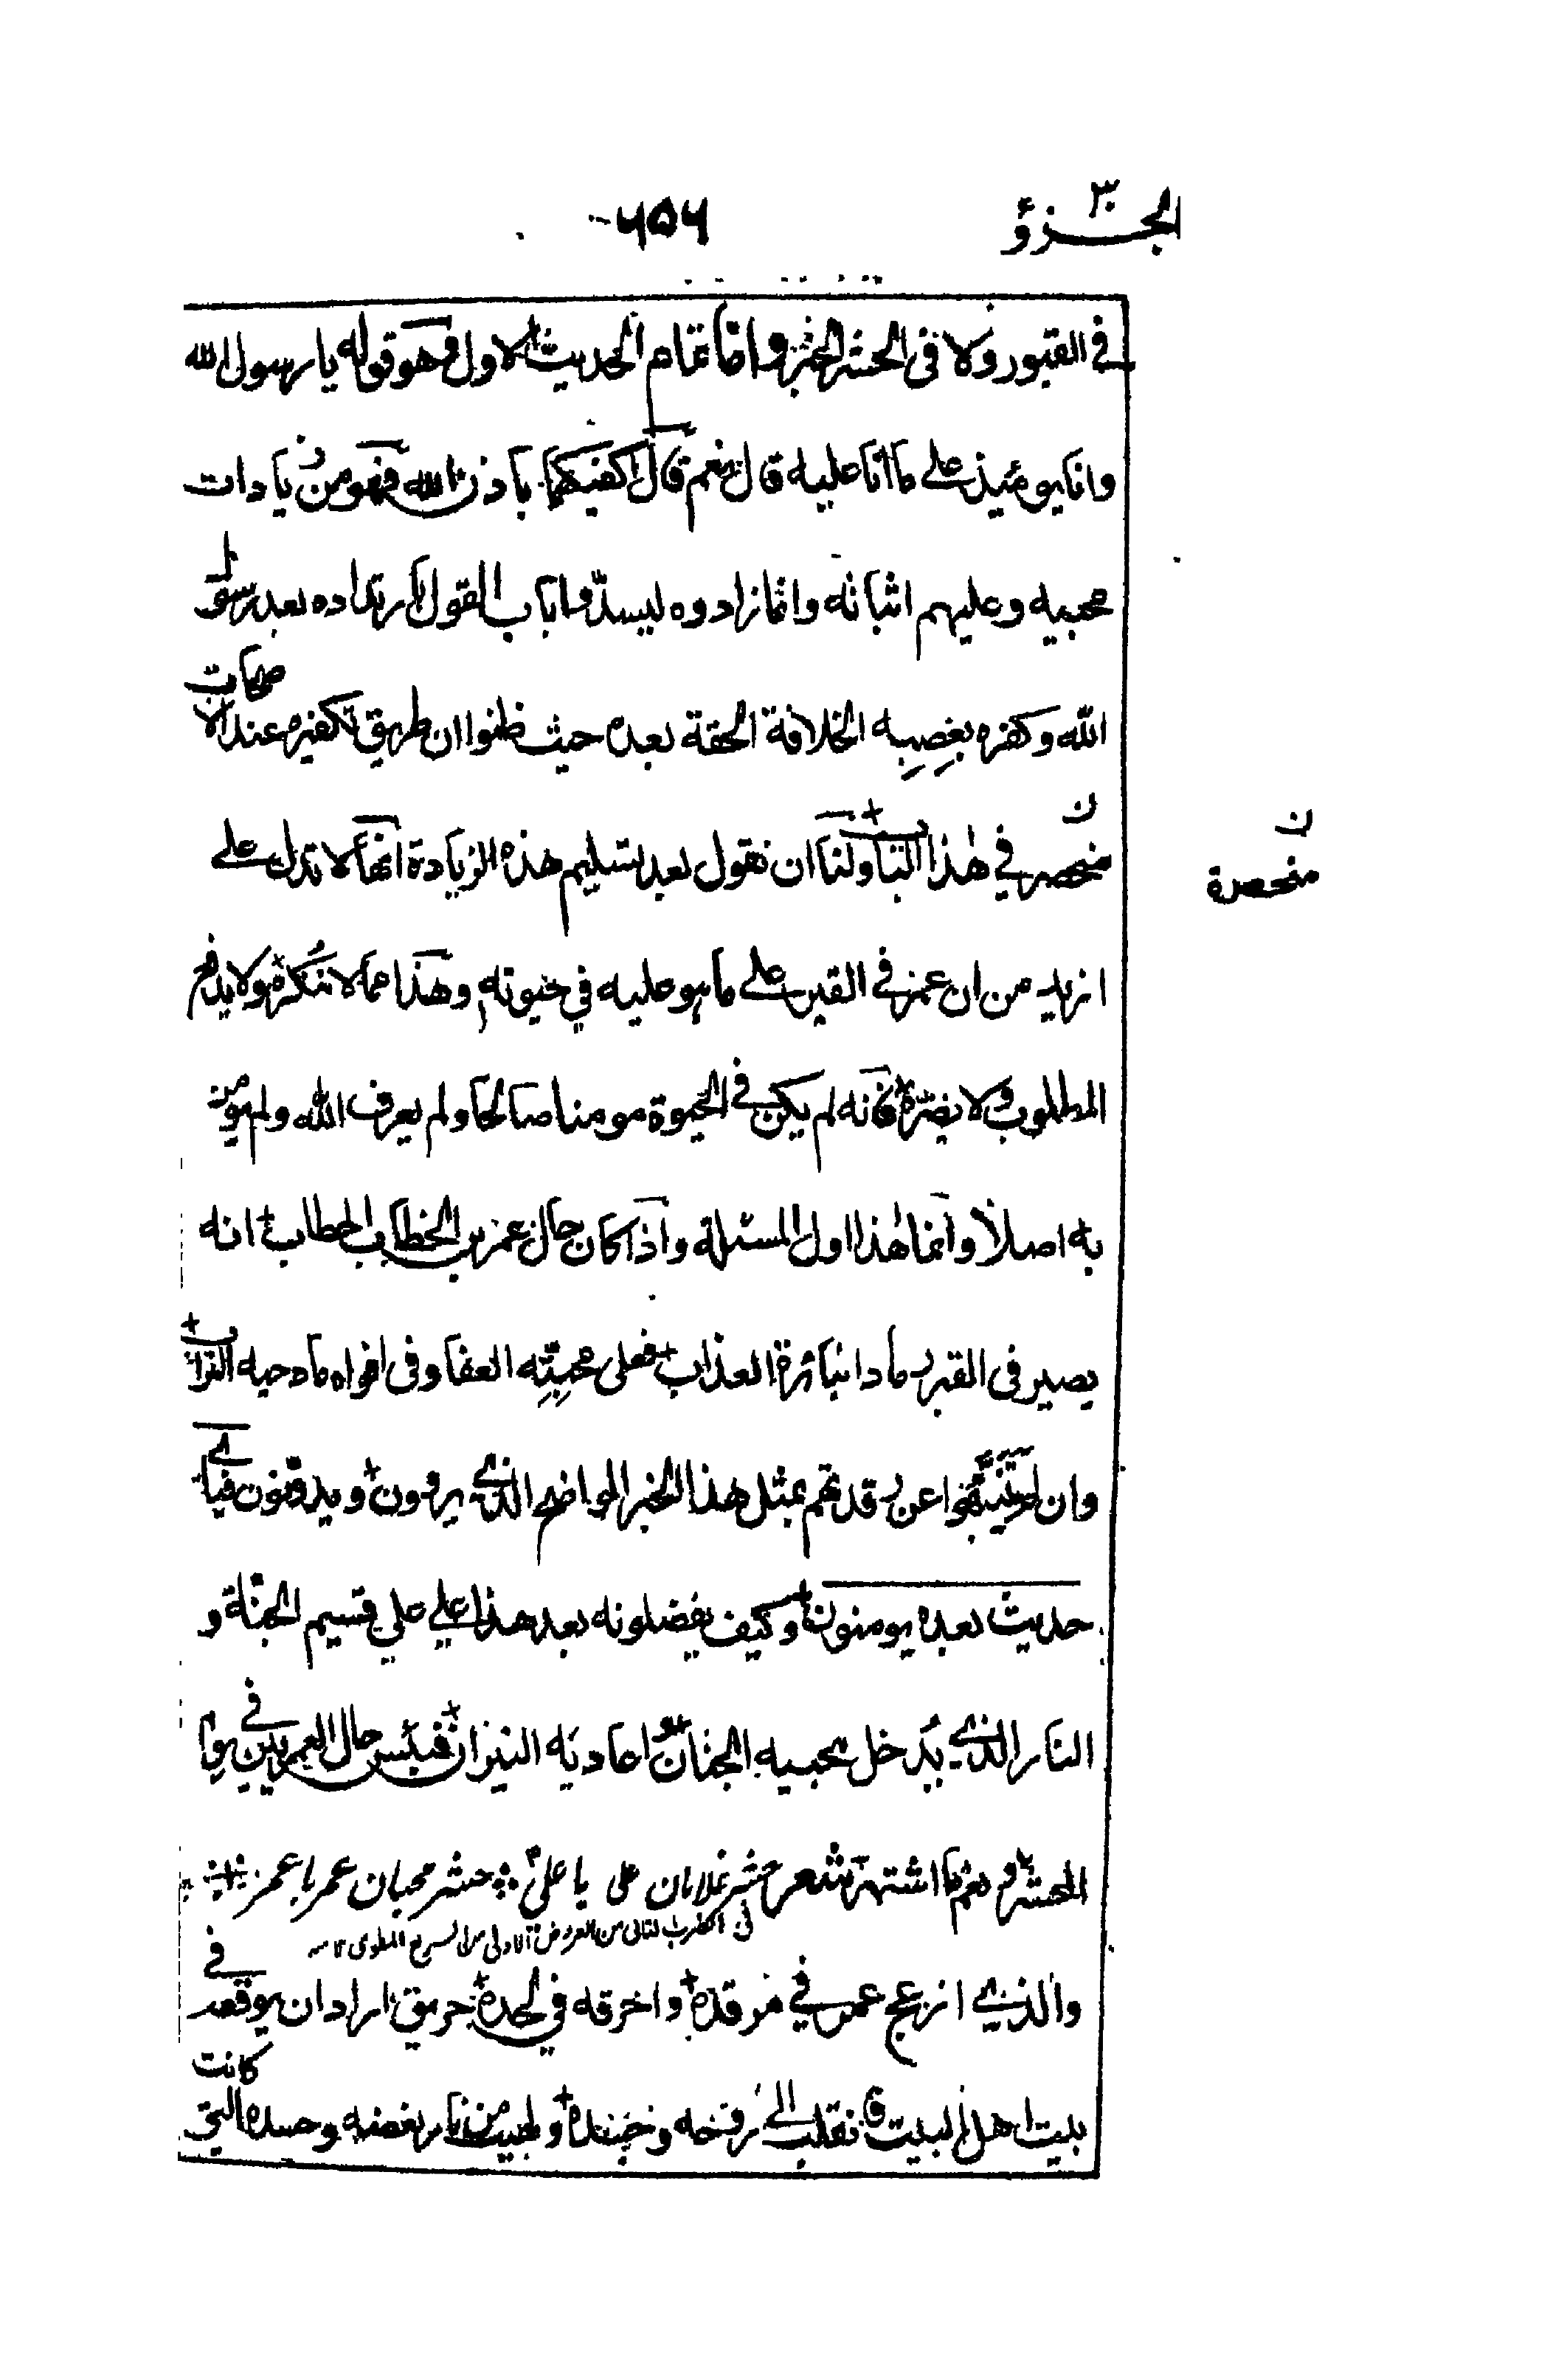 الجزؤ ٣٠
٦٥٦
في القبور ولا فى الحشر واما تمام الحديث الاول فهو قوله يا رسول الله
وانا يومئذ على ما انا عليه قال نعم قال اكفيكهما باذن الله فهو من زيادات
محبيه وعليهم اثباته وانما زادوه ليسدّوا باب القول بارتداده بعد رسول
الله وكفره بغصبه الخلافة الحقة بعده حيث ظنوا ان طريق تكفيره عند الاصحاب
منحصر في هذا الباب ولنا ان نقول بعد تسليم هذه الزيادة انها لا تدل على
ازيد من ان عمر في القبر على ما هو عليه في حيوته وهذا مما لا ننكره ولا يدفع
المطلوب ولا يضره فانه لم يكن في الحيوة مومنا صالحا ولم يعرف الله ولم يومن
به اصلا وانما هذا اول المسئلة واذا كان حال عمر بن الخطاب الحطاب انه
يصير فى القبر رمادا نباثرة العذاب فعلى محبيه العفا وفى افواه مادحيه التراب
وان لم ينتبهوا عن رقدتهم بمثل هذا الخبر الواضح الذي يروون ويدونون فباي
حديث بعده يومنون وكيف يفضلونه بعد هذا على علي قسيم الجنة و
النار الذي يدخل محبيه الجنان و اعاديه النيران فبئس حال العمريين في يوم
المحشر ونعم ما اشتهر شعر حشر غلامان على با على حشر محبان عمر با عمر
فى الضرب الثانى من العروض الاولى من السريع المطوى ١٢
والذي ازعج عمر في مرقده واحرقه في لحده حريق اراد ان يوقده في
بيت اهل البيت فانقلب الى رفحه وجسده ولهيب من نار بغضه وحسده التي كانت
ن
منحصرة